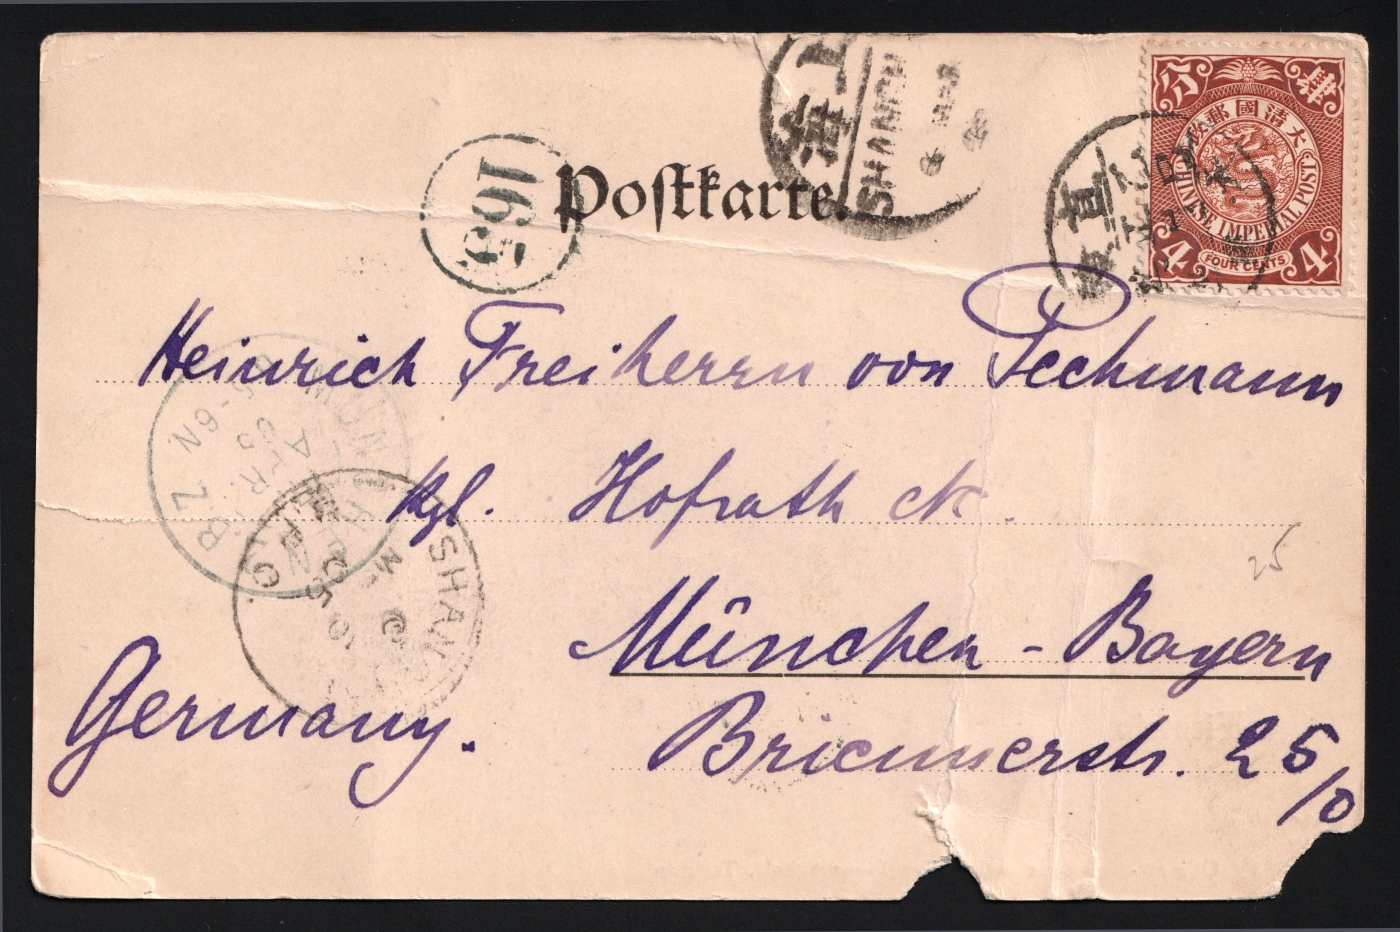 上海
SHANGH
大清國郵政
CHINESE IMPERIAL POST
4 FOUR CENTS 4
165
Postkarte.
Heinrich Freiherrn von Pechmann
kgl. Hofrath etc.
25
München - Bayern
Germany.
Briennerstr. 25/0
SHANGHAI
MÜNCHEN
APR.
5-6N
B.Z.